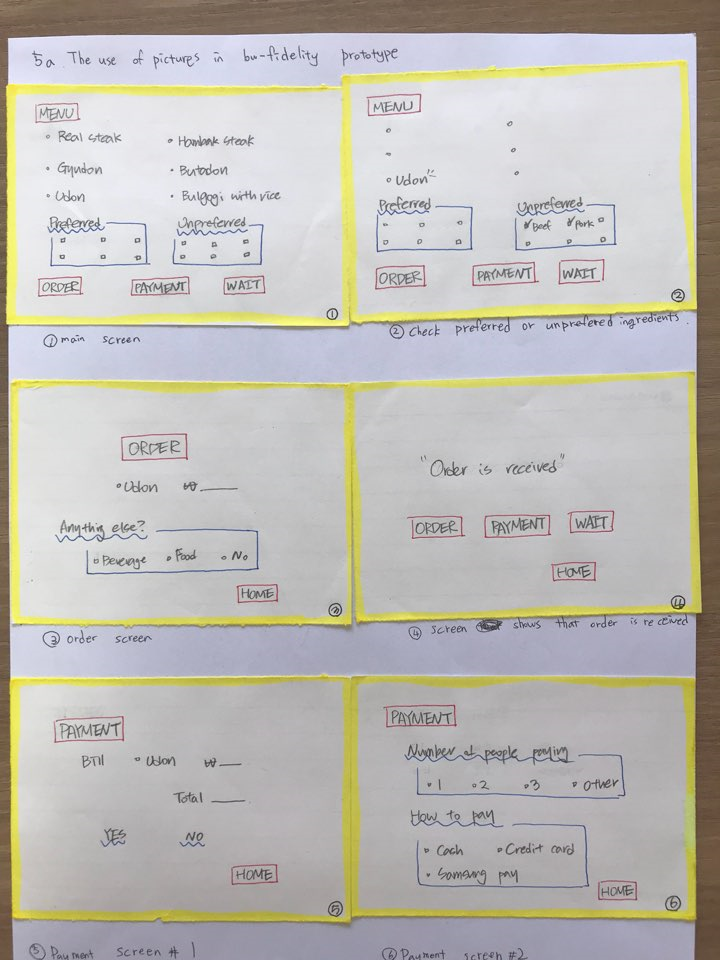 5a. The use of pictures in low-fidelity prototype
MENU
• Real steak • Hambak steak
• Gyudon • Butadon
• Udon • Bulgogi with rice
Preferred Unpreferred
ORDER PAYMENT WAIT
①
① main screen
MENU
• Udon
Preferred Unpreferred
Beef Pork
ORDER PAYMENT WAIT
②
② Check preferred or unprefered ingredients.
ORDER
• Udon ₩ ____
Anything else?
Beverage • Food • No
HOME
③
③ order screen
"Order is received"
ORDER PAYMENT WAIT
HOME
④
④ screen shows that order is received
PAYMENT
Bill • Udon ₩ ___
Total ____
YES NO
HOME
⑤
⑤ Payment screen # 1
PAYMENT
Number of people paying
• 1 • 2 • 3 • Other
How to pay
• Cash • Credit card
• Samsung pay
HOME
⑥
⑥ Payment screen #2